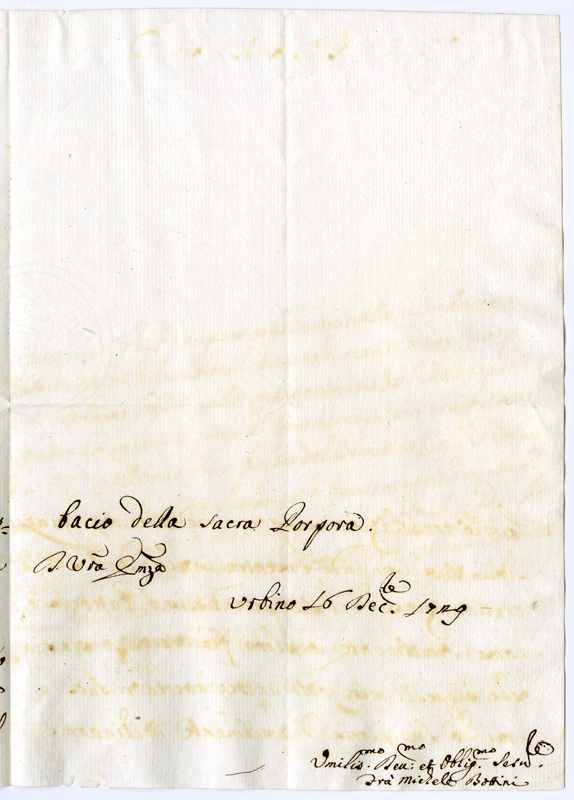 bacio della sacra Porpora.
D. Vrã Emza
Urbino 16 Dec.bre 1729
Umiliss.mo Dev.mo et Oblig.mo Ser.re
Michele Bottini